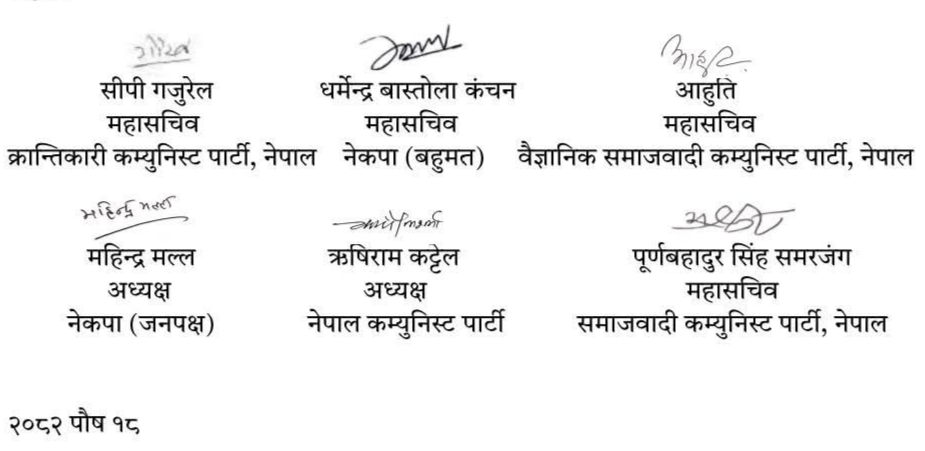 सीपी गजुरेल धर्मेन्द्र बास्तोला कंचन आहुति
महासचिव महासचिव महासचिव
क्रान्तिकारी कम्युनिस्ट पार्टी, नेपाल नेकपा (बहुमत) वैज्ञानिक समाजवादी कम्युनिस्ट पार्टी, नेपाल
महिन्द्र मल्ल
महिन्द्र मल्ल ऋषिराम कट्टेल पूर्णबहादुर सिंह समरजंग
अध्यक्ष अध्यक्ष महासचिव
नेकपा (जनपक्ष) नेपाल कम्युनिस्ट पार्टी समाजवादी कम्युनिस्ट पार्टी, नेपाल
२०८२ पौष १८